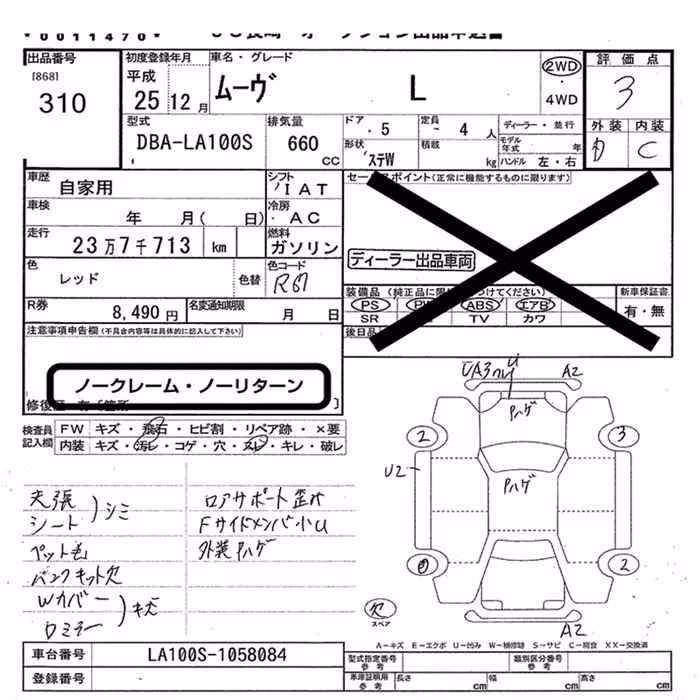 *0011470*
出品番号
[868]
310
初度登録年月
平成
25 12月
車名・グレード
ムーヴ L
2WD
・
4WD
評価点
3
外装 内装
D C
型式
DBA-LA100S
排気量
660
CC
ドア
・5
定員
・4人
ディーラー・並行
形状
ステW
積載
kg
モデル年式
年
ハンドル 左・右
車歴
自家用
シフト
IAT
車検
年 月( 日)
冷房
・AC
走行
23万7千713 km
燃料
ガソリン
色
レッド
色替
色コード
R67
R券
8,490円
名変通知期限
月 日
セールスポイント(正常に機能するものに限ります)
ディーラー出品車両
装備品
PS PW ABS エアB
SR TV カワ
新車保証書
有・無
後日品
注意事項申告欄(不具合内容等は具体的に記入して下さい)
ノークレーム・ノーリターン
修復歴
検査員記入欄
FW キズ・飛石・ヒビ割・リペア跡・×要
内装 キズ・汚レ・コゲ・穴・スレ・キレ・破レ
天張
シート
)シミ
パンクキット欠
Wカバー
ロミラー
)キズ
ロアサポート歪み
Fサイドメンバ小U
外装Pハゲ
A2
Pハゲ
2
3
U2
Pハゲ
2
欠
スペア
A2
A=キズ E=エクボ U=凹み W=補修跡 S=サビ C=腐食 XX=交換済
車台番号
LA100S-1058084
登録番号
型式指定番号
参考
類別区分番号
参考
車庫証明用
参考
長さ cm 幅 cm 高さ cm